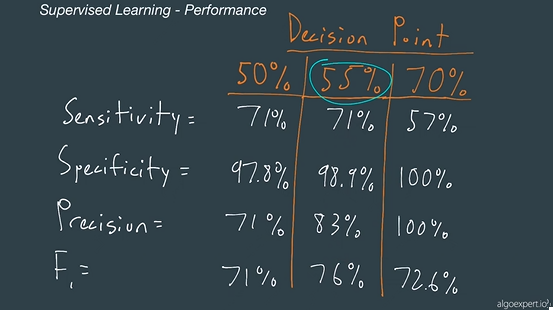 Supervised Learning - Performance
Decision Point
50% 55% 70%
Sensitivity = 71% 71% 57%
Specificity = 97.8% 98.9% 100%
Precision = 71% 83% 100%
F₁ = 71% 76% 72.6%
algoexpert.io